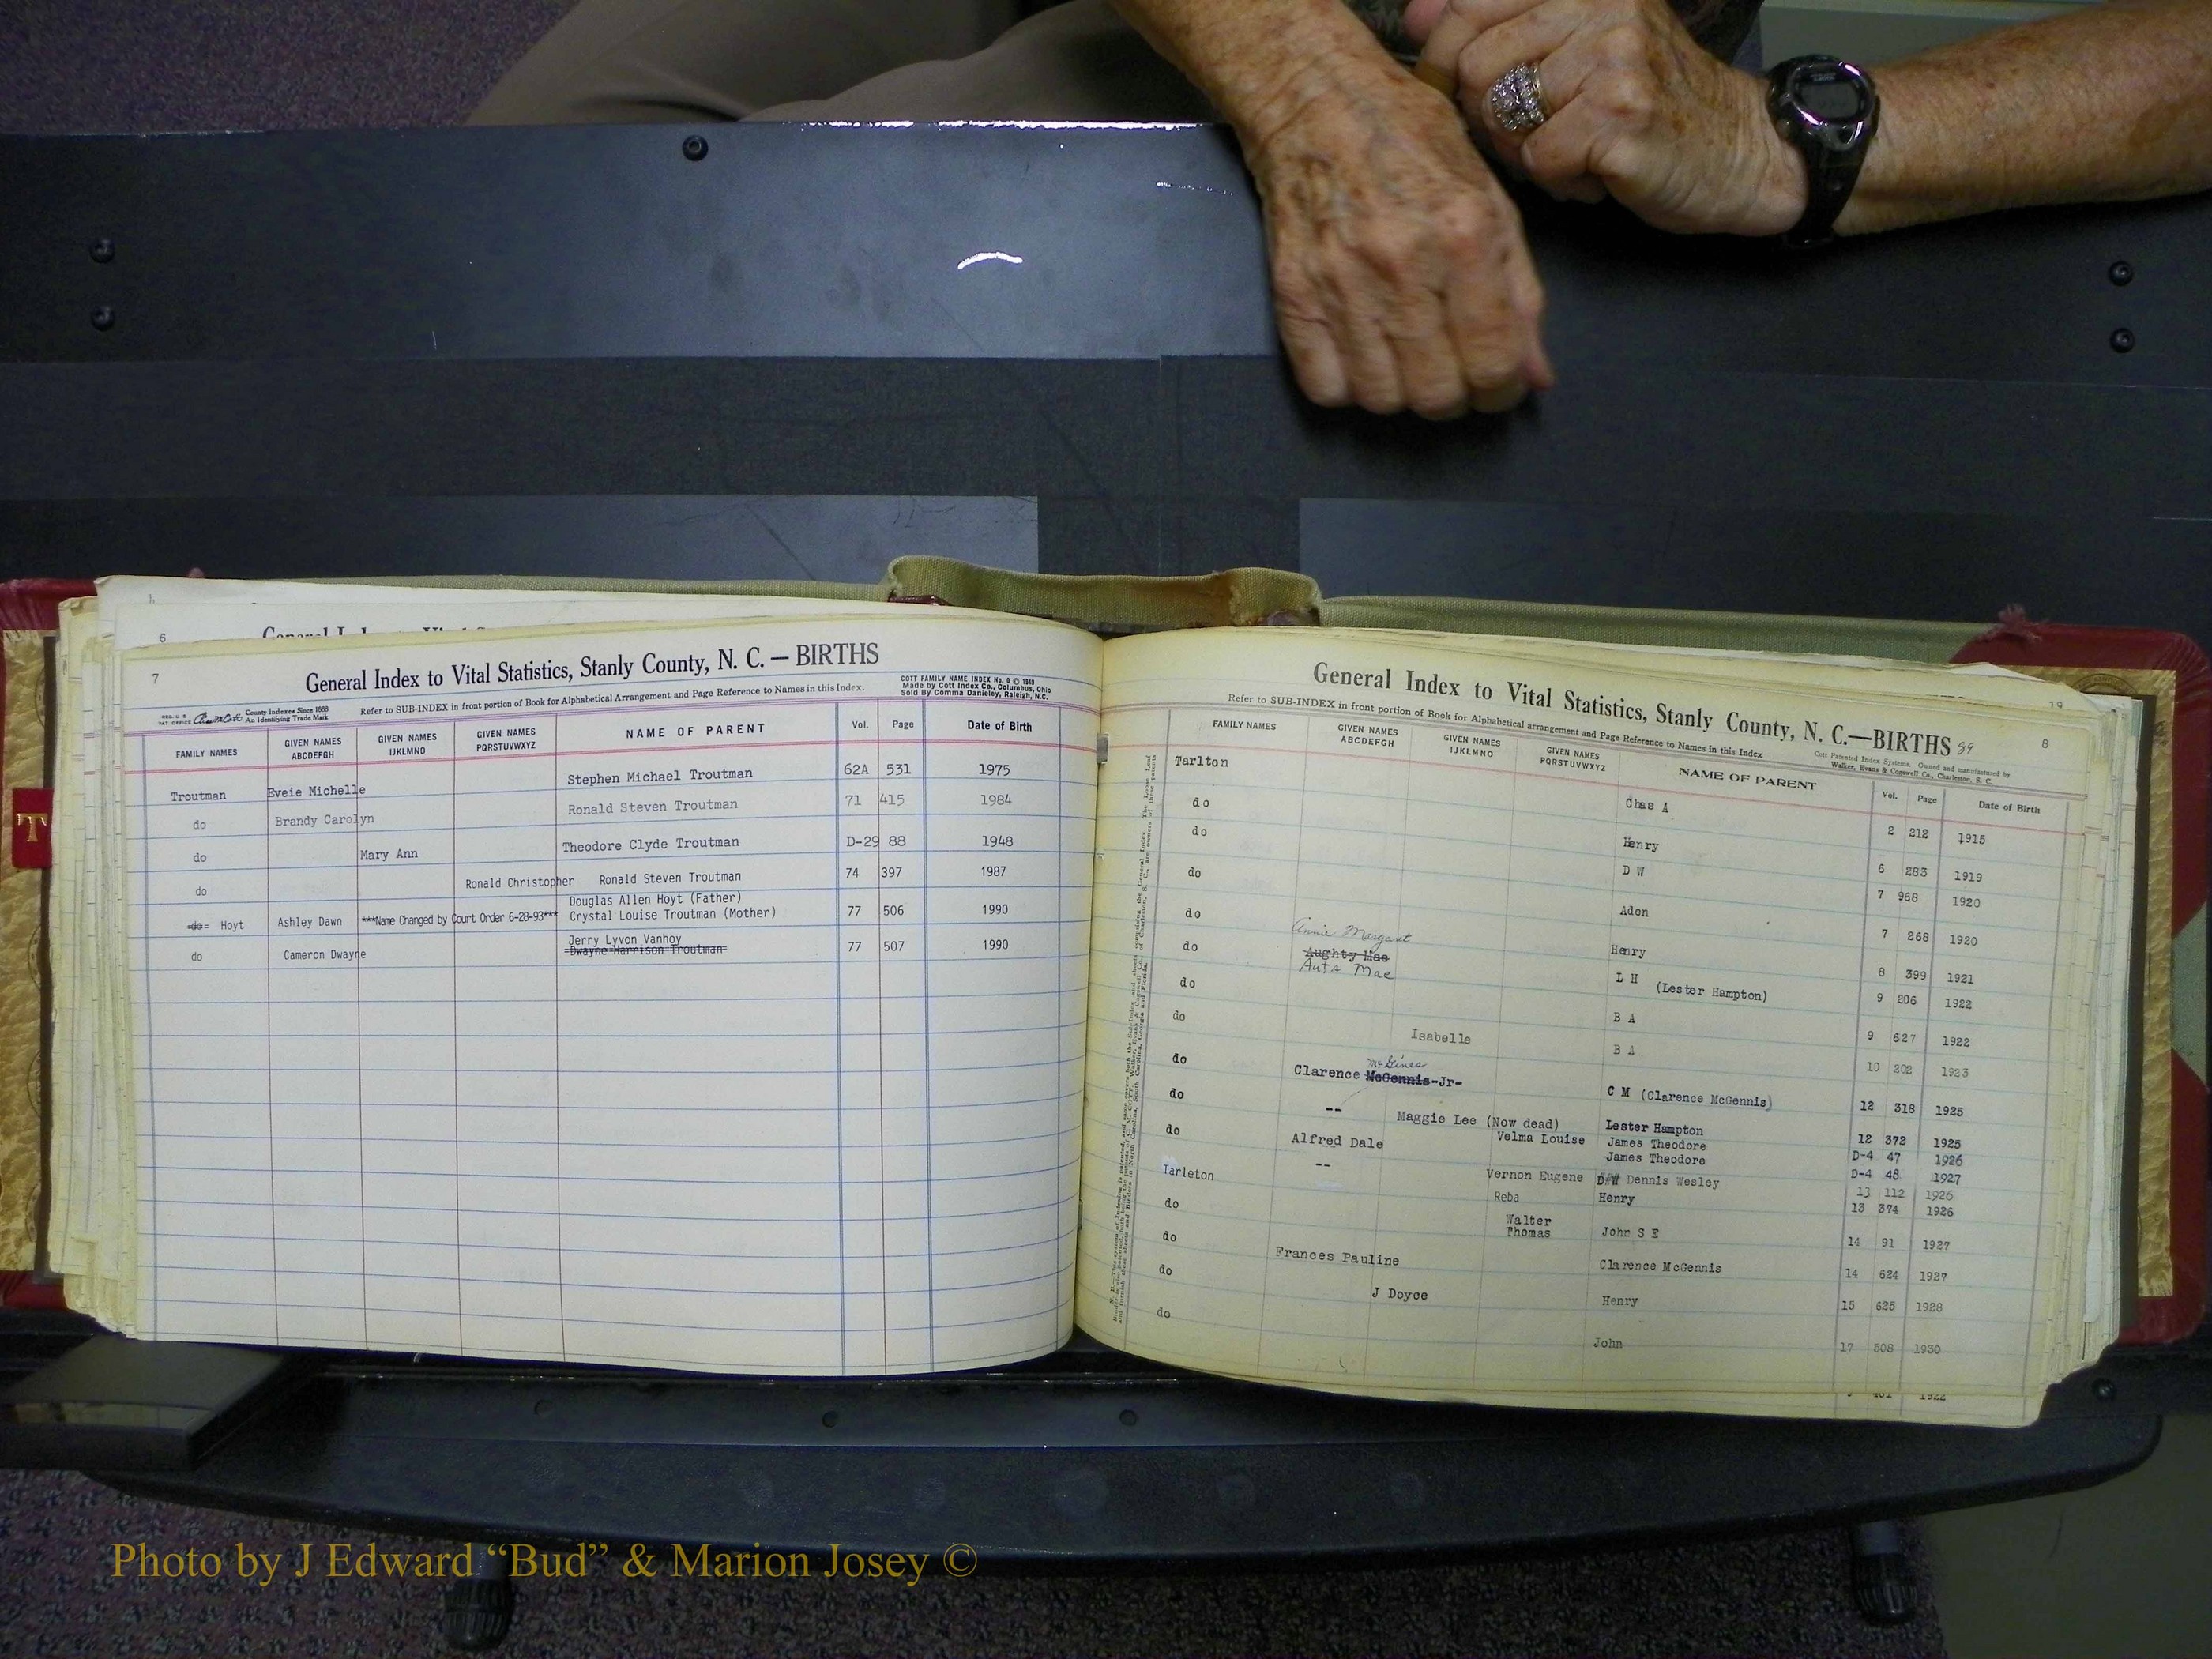 6
7
General Index to Vital Statistics, Stanly County, N. C. — BIRTHS
COTT FAMILY NAME INDEX No. 8 © 1949
Made by Cott Index Co., Columbus, Ohio
Sold By Comma Danieley, Raleigh, N.C.
County Indexes Since 1888
An Identifying Trade Mark
Refer to SUB-INDEX in front portion of Book for Alphabetical Arrangement and Page Reference to Names in this Index.
FAMILY NAMES GIVEN NAMES ABCDEFGH GIVEN NAMES IJKLMNO GIVEN NAMES PQRSTUVWXYZ NAME OF PARENT Vol. Page Date of Birth
Troutman Eveie Michelle Stephen Michael Troutman 62A 531 1975
do Brandy Carolyn Ronald Steven Troutman 71 415 1984
do Mary Ann Theodore Clyde Troutman D-29 88 1948
do Ronald Christopher Ronald Steven Troutman 74 397 1987
Douglas Allen Hoyt (Father)
do Hoyt Ashley Dawn ***Name Changed by Court Order 6-28-93*** Crystal Louise Troutman (Mother) 77 506 1990
Jerry Lyvon Vanhoy
do Cameron Dwayne Dwayne Harrison Troutman 77 507 1990
T
General Index to Vital Statistics, Stanly County, N. C.—BIRTHS
8
Refer to SUB-INDEX in front portion of Book for Alphabetical arrangement and Page Reference to Names in this Index
Cott Patented Index Systems. Owned and manufactured by
Walker, Evans & Cogswell Co., Charleston, S. C.
FAMILY NAMES GIVEN NAMES ABCDEFGH GIVEN NAMES IJKLMNO GIVEN NAMES PQRSTUVWXYZ NAME OF PARENT Vol. Page Date of Birth
Tarlton Chas A 2 212 1915
do Henry 6 283 1919
do D W 7 968 1920
do Aden 7 268 1920
do Henry 8 399 1921
Annie Margaret
do Aughty Mae L H (Lester Hampton) 9 206 1922
Auta Mae
do B A 9 627 1922
do Isabelle B A 10 202 1923
McGines
do Clarence McGennis-Jr- C M (Clarence McGennis) 12 318 1925
do -- Maggie Lee (Now dead) Lester Hampton 12 372 1925
Velma Louise James Theodore D-4 47 1926
do Alfred Dale James Theodore D-4 48 1927
-- Vernon Eugene Dennis Wesley 13 112 1926
Tarleton Reba Henry 13 374 1926
do Walter Thomas John S E 14 91 1927
do Frances Pauline Clarence McGennis 14 624 1927
do J Doyce Henry 15 625 1928
do John 17 508 1930
Photo by J Edward “Bud” & Marion Josey ©